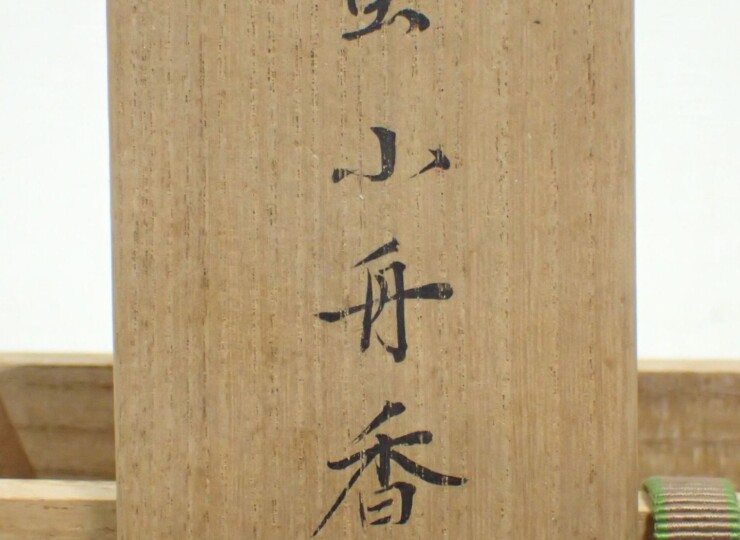 小舟香